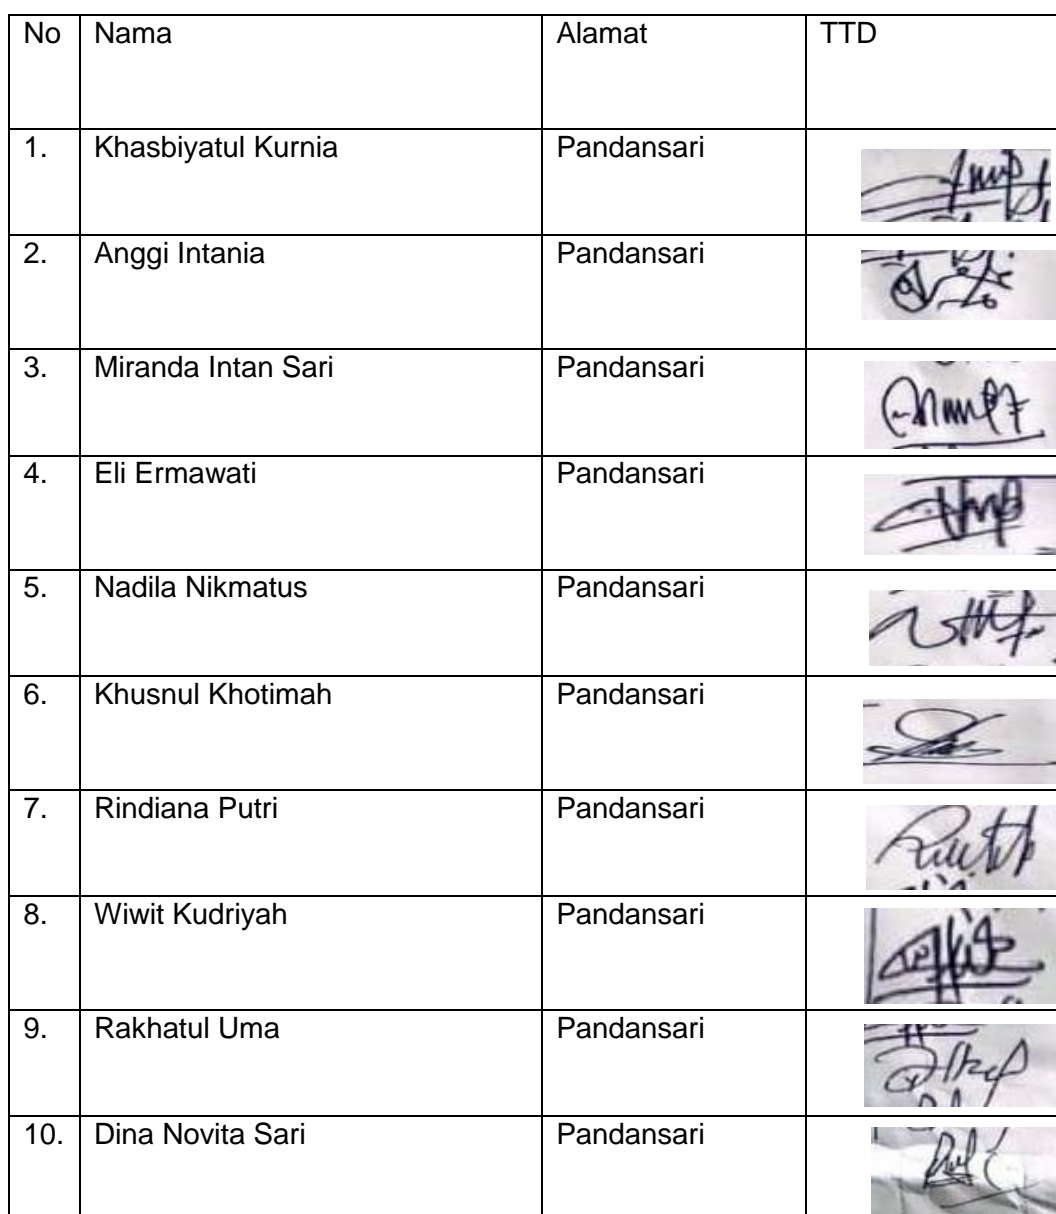 No Nama Alamat TTD
1. Khasbiyatul Kurnia Pandansari
2. Anggi Intania Pandansari
3. Miranda Intan Sari Pandansari
4. Eli Ermawati Pandansari
5. Nadila Nikmatus Pandansari
6. Khusnul Khotimah Pandansari
7. Rindiana Putri Pandansari
8. Wiwit Kudriyah Pandansari
9. Rakhatul Uma Pandansari
10. Dina Novita Sari Pandansari